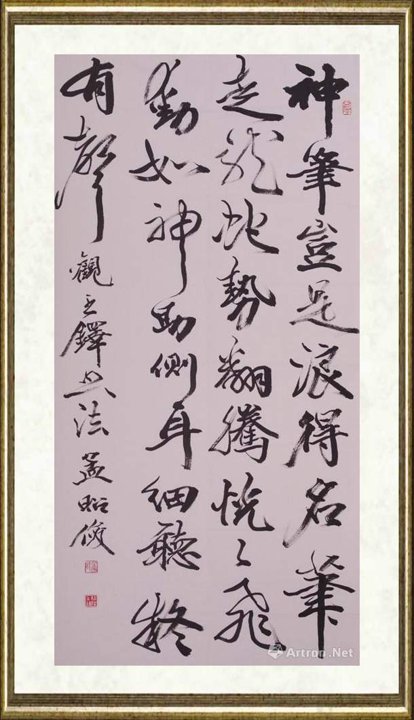 神筆豈是浪得名筆
走龍蛇勢翻騰恍々飛
動如神助側耳細聽疑
有聲
觀王鐸書法 孟昭俊
Artron.Net